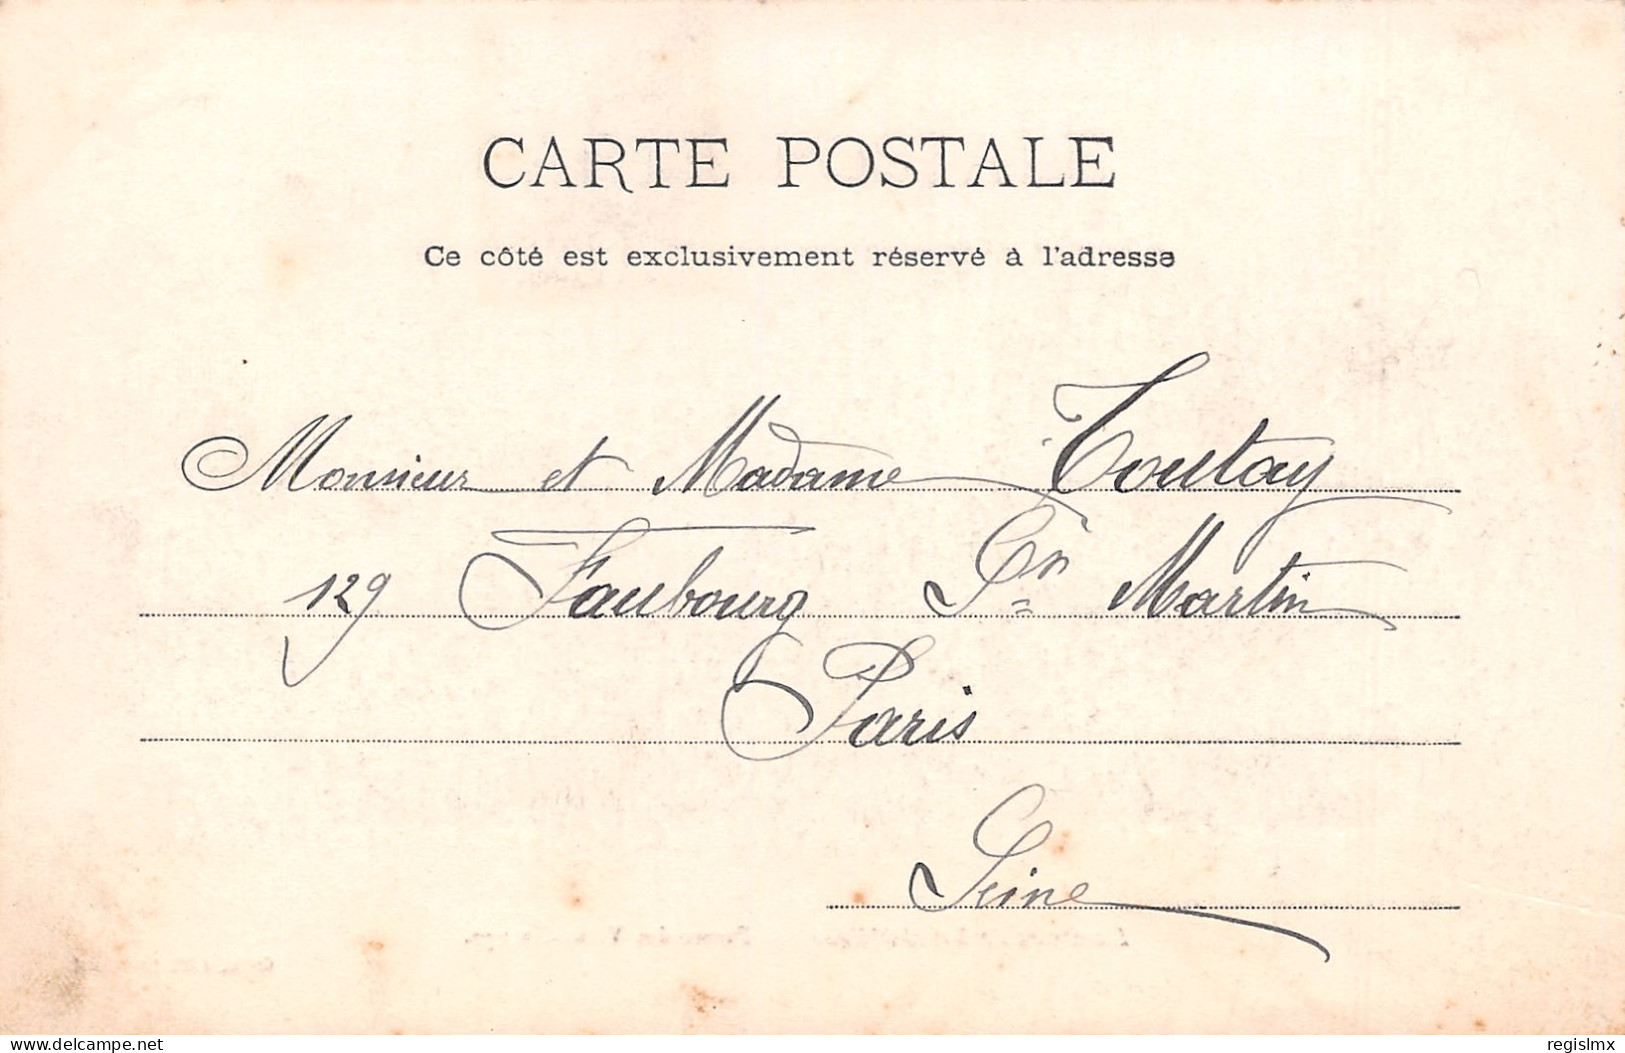 CARTE POSTALE
Ce côté est exclusivement réservé à l'adresse
Monsieur et Madame Toutay
129 Faubourg St Martin
Paris
Seine
delcampe.net
regislmx